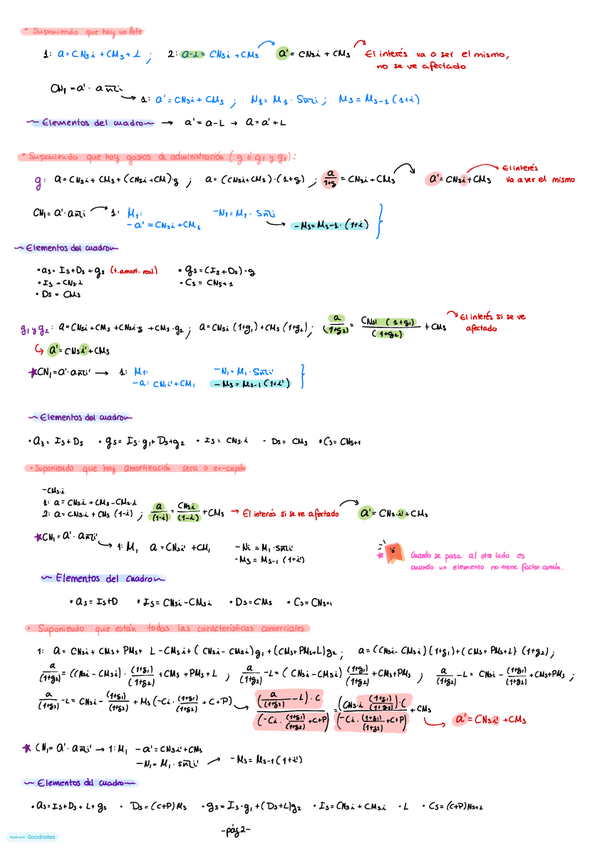 * Suponiendo que hay un lote
1: a = CNs i + CMs + L ; 2: a-L = CNs i + CMs a' = CNs i + CMs El interés va a ser el mismo, no se ve afectado
CN1 = a' · a n¬i
1: a' = CNs i + CMs ; N1 = M1 · S n¬i ; Ms = Ms-1 (1+i)
~ Elementos del cuadro ~ → a' = a-L → a = a' + L
* Suponiendo que hay gastos de administración (g ó g1 y g2):
g: a = CNs i + CMs + (CNs i + CM)·g ; a = (CNs i + CMs) · (1+g) ; a/(1+g) = CNs i + CMs a' = CNs i + CMs El interés va a ser el mismo
CN1 = a' · a n¬i 1: M1: -N1 = M1 · S n¬i
-a' = CNs i + CM1 -Ms = Ms-1 · (1+i)
~ Elementos del cuadro ~
• as = Is + Ds + gs (t. amort. real) • gs = (Is + Ds) · g
• Is = CNs · i • Cs = CNs+1
• Ds = CMs
g1 y g2: a = CNs i + CMs + CNs i g1 + CMs · g2 ; a = CNs i (1+g1) + CMs (1+g2) ; a/(1+g2) = CNs i (1+g1)/(1+g2) + CMs El interés si se ve afectado
a' = CNs i' + CMs
* CN1 = a' · a n¬i' → 1: M1: -N1 = M1 · S n¬i'
-a: CN1 i' + CM1 -Ms = Ms-1 (1+i')
~ Elementos del cuadro ~
• as = Is + Ds • gs = Is · g1 + Ds + g2 • Is = CNs · i • Ds = CMs • Cs = CNs+1
• Suponiendo que hay amortización seca o ex-cupón
-CMs · i
1: a = CNs i + CMs - CMs · i
2: a = CNs i + CMs (1-i) ; a/(1-i) = CNs i/(1-i) + CMs → El interés si se ve afectado a' = CNs · i' + CMs
* CN1 = a' · a n¬i'
1: M1 a = CNs i' + CM1 -N1 = M1 · S n¬i'
-Ms = Ms-1 (1+i')
* Cuando se pasa al otro lado es
cuando un elemento no tiene factor común.
~ Elementos del cuadro ~
• as = Is + D • Is = CNs i - CMs i • Ds = CMs • Cs = CNs+1
• Suponiendo que están todas las características comerciales
1: a = CNs i + CMs + PMs + L - CMs i + (CNs i - CMs i) g1 + (CMs + PMs + L) g2 ; a = (CNs i - CMs i) (1+g1) + (CMs + PMs + L) (1+g2) ;
a/(1+g2) = (CNs i - CMs i) · (1+g1)/(1+g2) + CMs + PMs + L ; a/(1+g2) - L = (CNs i - CMs i) (1+g1)/(1+g2) + CMs + PMs ; a/(1+g2) - L = CNs i · (1+g1)/(1+g2) + CMs + PMs ;
a/(1+g2) - L = CNs i · (1+g1)/(1+g2) + Ms (-Ci · (1+g1)/(1+g2) + C + P) (a/(1+g2) - L) · C/(-Ci · (1+g1)/(1+g2) + C + P) = (CNs i (1+g1)/(1+g2)) · C/(-Ci · (1+g1)/(1+g2) + C + P) + CMs a' = CNs i' + CMs
* CN1 = a' · a n¬i' → 1: M1 -a' = CNs i' + CMs
-N1 = M1 · S n¬i' -Ms = Ms-1 (1+i')
~ Elementos del cuadro ~
• as = Is + Ds + L + gs • Ds = (C+P) Ms • gs = Is · g1 + (Ds + L) g2 • Is = CNs i + CMs i • L • Cs = (C+P) Ns+1
-pág 2-
Made with Goodnotes